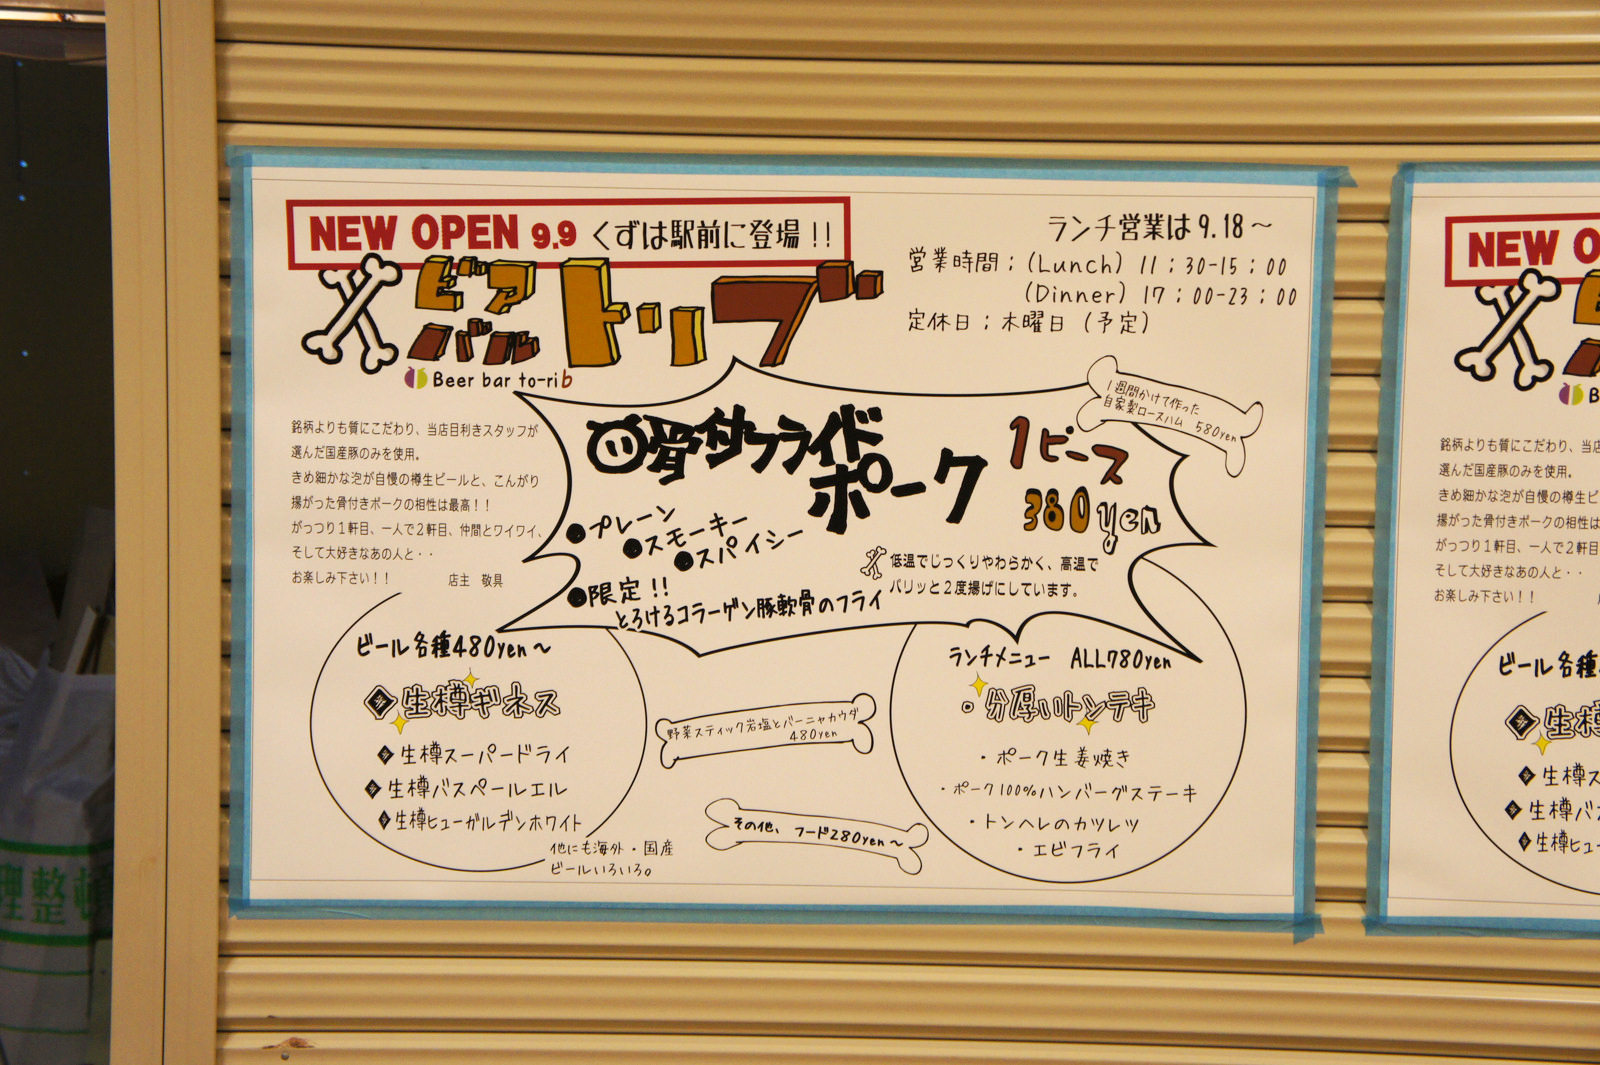 NEW OPEN 9.9 くずは駅前に登場!!
ビア
バル
トリブ
Beer bar to-rib
ランチ営業は9.18～
営業時間;(Lunch) 11:30-15:00
(Dinner) 17:00-23:00
定休日;木曜日(予定)
銘柄よりも質にこだわり、当店目利きスタッフが
選んだ国産豚のみを使用。
きめ細かな泡が自慢の樽生ビールと、こんがり
揚がった骨付きポークの相性は最高!!
がっつり1軒目、一人で2軒目、仲間とワイワイ、
そして大好きなあの人と・・
お楽しみ下さい!! 店主 敬具
骨付フライド
ポーク
1ピース
380yen
1週間かけて作った
自家製ロースハム 580yen
●プレーン
●スモーキー
●スパイシー
●限定!!
とろけるコラーゲン豚軟骨のフライ
低温でじっくりやわらかく、高温で
パリッと2度揚げにしています。
ビール各種480yen～
生樽ギネス
生樽スーパードライ
生樽バスペールエル
生樽ヒューガルデンホワイト
他にも海外・国産
ビールいろいろ。
野菜スティック岩塩とバーニャカウダ
480yen
その他、フード280yen～
ランチメニュー ALL780yen
・分厚いトンテキ
・ポーク生姜焼き
・ポーク100%ハンバーグステーキ
・トンヘレのカツレツ
・エビフライ
NEW O
B
銘柄よりも質にこだわり、当店
選んだ国産豚のみを使用。
きめ細かな泡が自慢の樽生ビ
揚がった骨付きポークの相性は
がっつり1軒目、一人で2軒目
そして大好きなあの人と・・
お楽しみ下さい!!
ビール各種
生樽
生樽ス
生樽バ
生樽ヒュ
理整頓